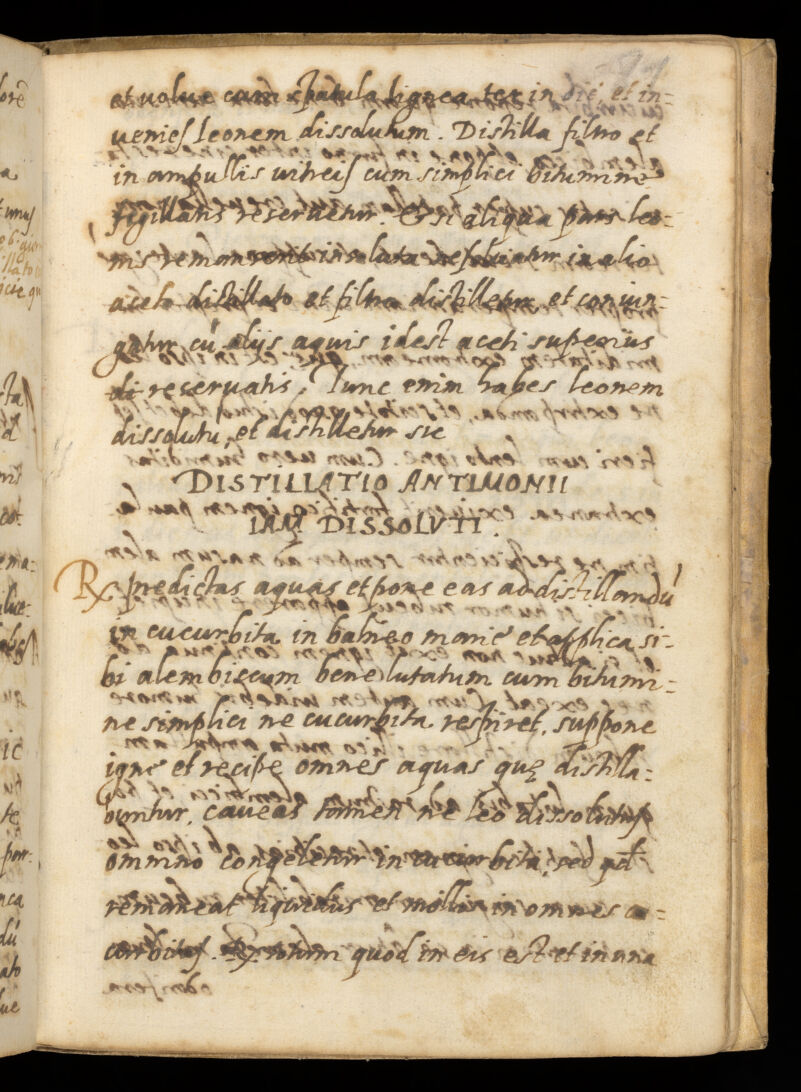 et uolue cum spatula lignea ter in die et in=
uenies leonem dissolutum. Distilla filtro et
in ampullis uitreis cum simplici bitumine
sigillatis reseruetur. Et si aliqua pars leo=
nis remanserit in alio
aceto distillato et filtro distilletur et coniun=
gatur cū alijs aquis idest aceti superius
di reseruatis. Tunc enim habes leonem
dissolutū, et distilletur sic
DISTILLATIO ANTIMONII
IAM DISSOLVTI.
℞ predictas aquas et pone eas ad distillandū
in cucurbita in balneo marie et applica si=
bi alembiccum bene lutatum cum bitumi=
ne simplici ne cucurbita respiret, suppone
igne et recipe omnes aquas quę distilla=
buntur, caueas tamen ne leo dissolutus
omnino congeletur in cucurbita, sed
remaneat liquidus et mollis in omnes cu=
curbitas. totum quod in eis est et in una